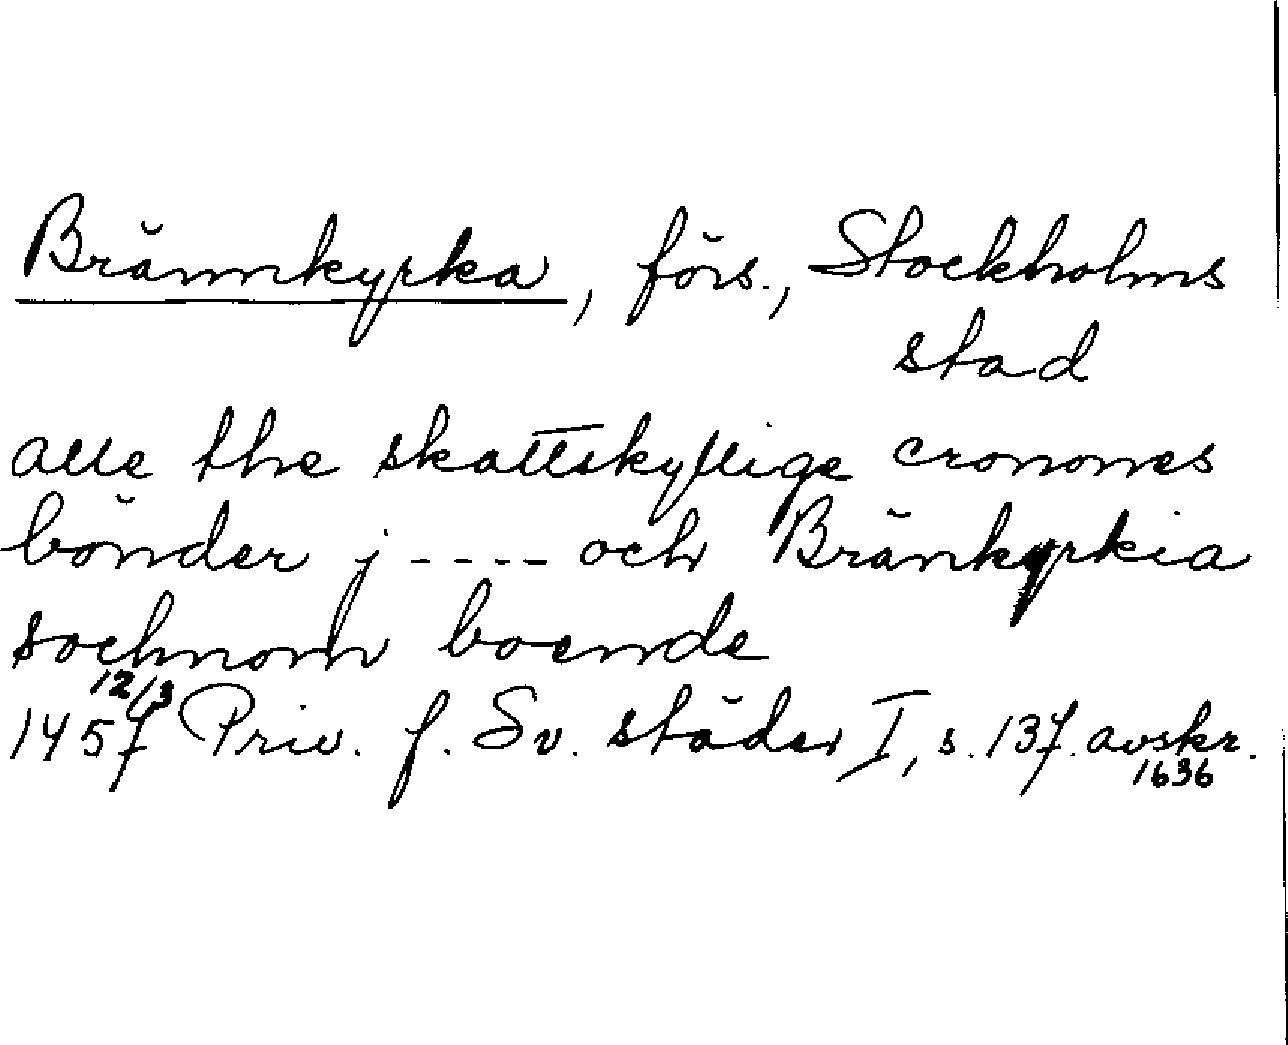 Brännkyrka, förs., Stockholms
stad
alle the skattskyllige cronones
bönder j ---- och Bränkyrkia
sochnom boende
1457 12/3 Priv. f. Sv. städer I, s. 137. avskr.
1636